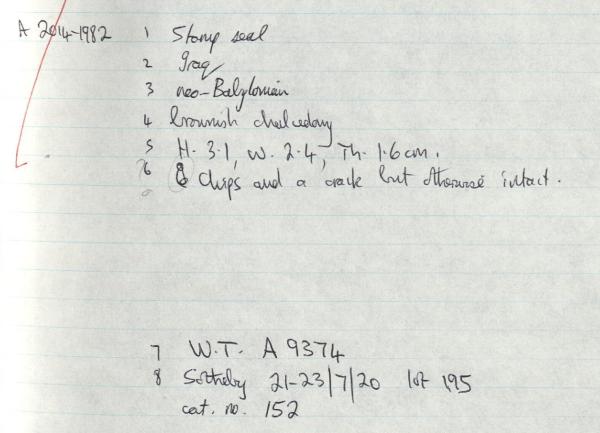 A 2014-1982 1 Stamp seal
2 Iraq
3 neo-Babylonian
4 brownish chalcedony
5 H. 3.1, W. 2.4, Th. 1.6 cm.
6 Chips and a crack but otherwise intact.
7 W.T. A 9374
8 Sotheby 21-23/7/20 lot 195
cat. no. 152